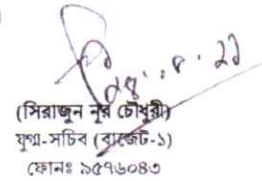 (সিরাজুন নূর চৌধুরী)
যুগ্ম-সচিব (বাজেট-১)
ফোনঃ ৯৫৭৬০৪৩